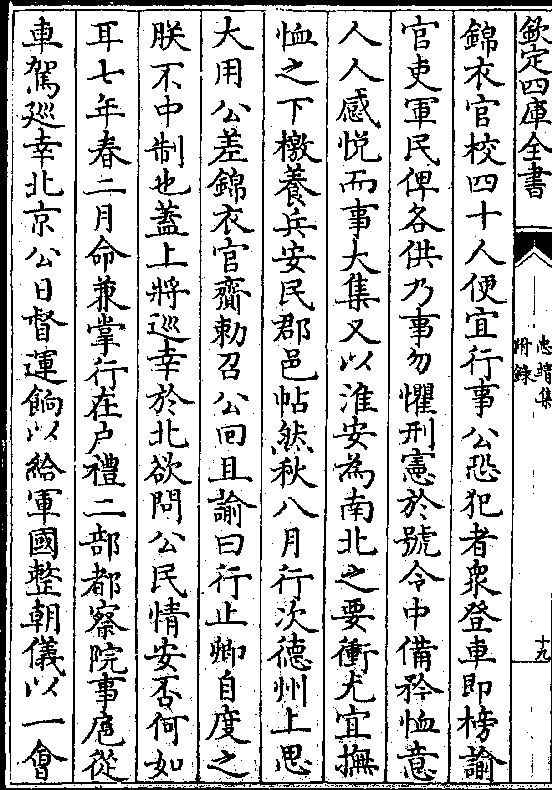 欽定四庫全書
忠靖集
附錄
十九
錦衣官校四十人便宜行事公恐犯者衆登車即榜諭
官吏軍民俾各供乃事勿懼刑憲於號令中備矜恤意
人人感悅而事大集又以淮安為南北之要衝尤宜撫
恤之下檄養兵安民郡邑帖然秋八月行次德州上思
大用公差錦衣官齎勅召公回且諭曰行止卿自度之
朕不中制也蓋上將巡幸於北欲問公民情安否何如
耳七年春二月命兼掌行在户禮二部都察院事扈從
車駕巡幸北京公日督運餉以給軍國整朝儀以一會